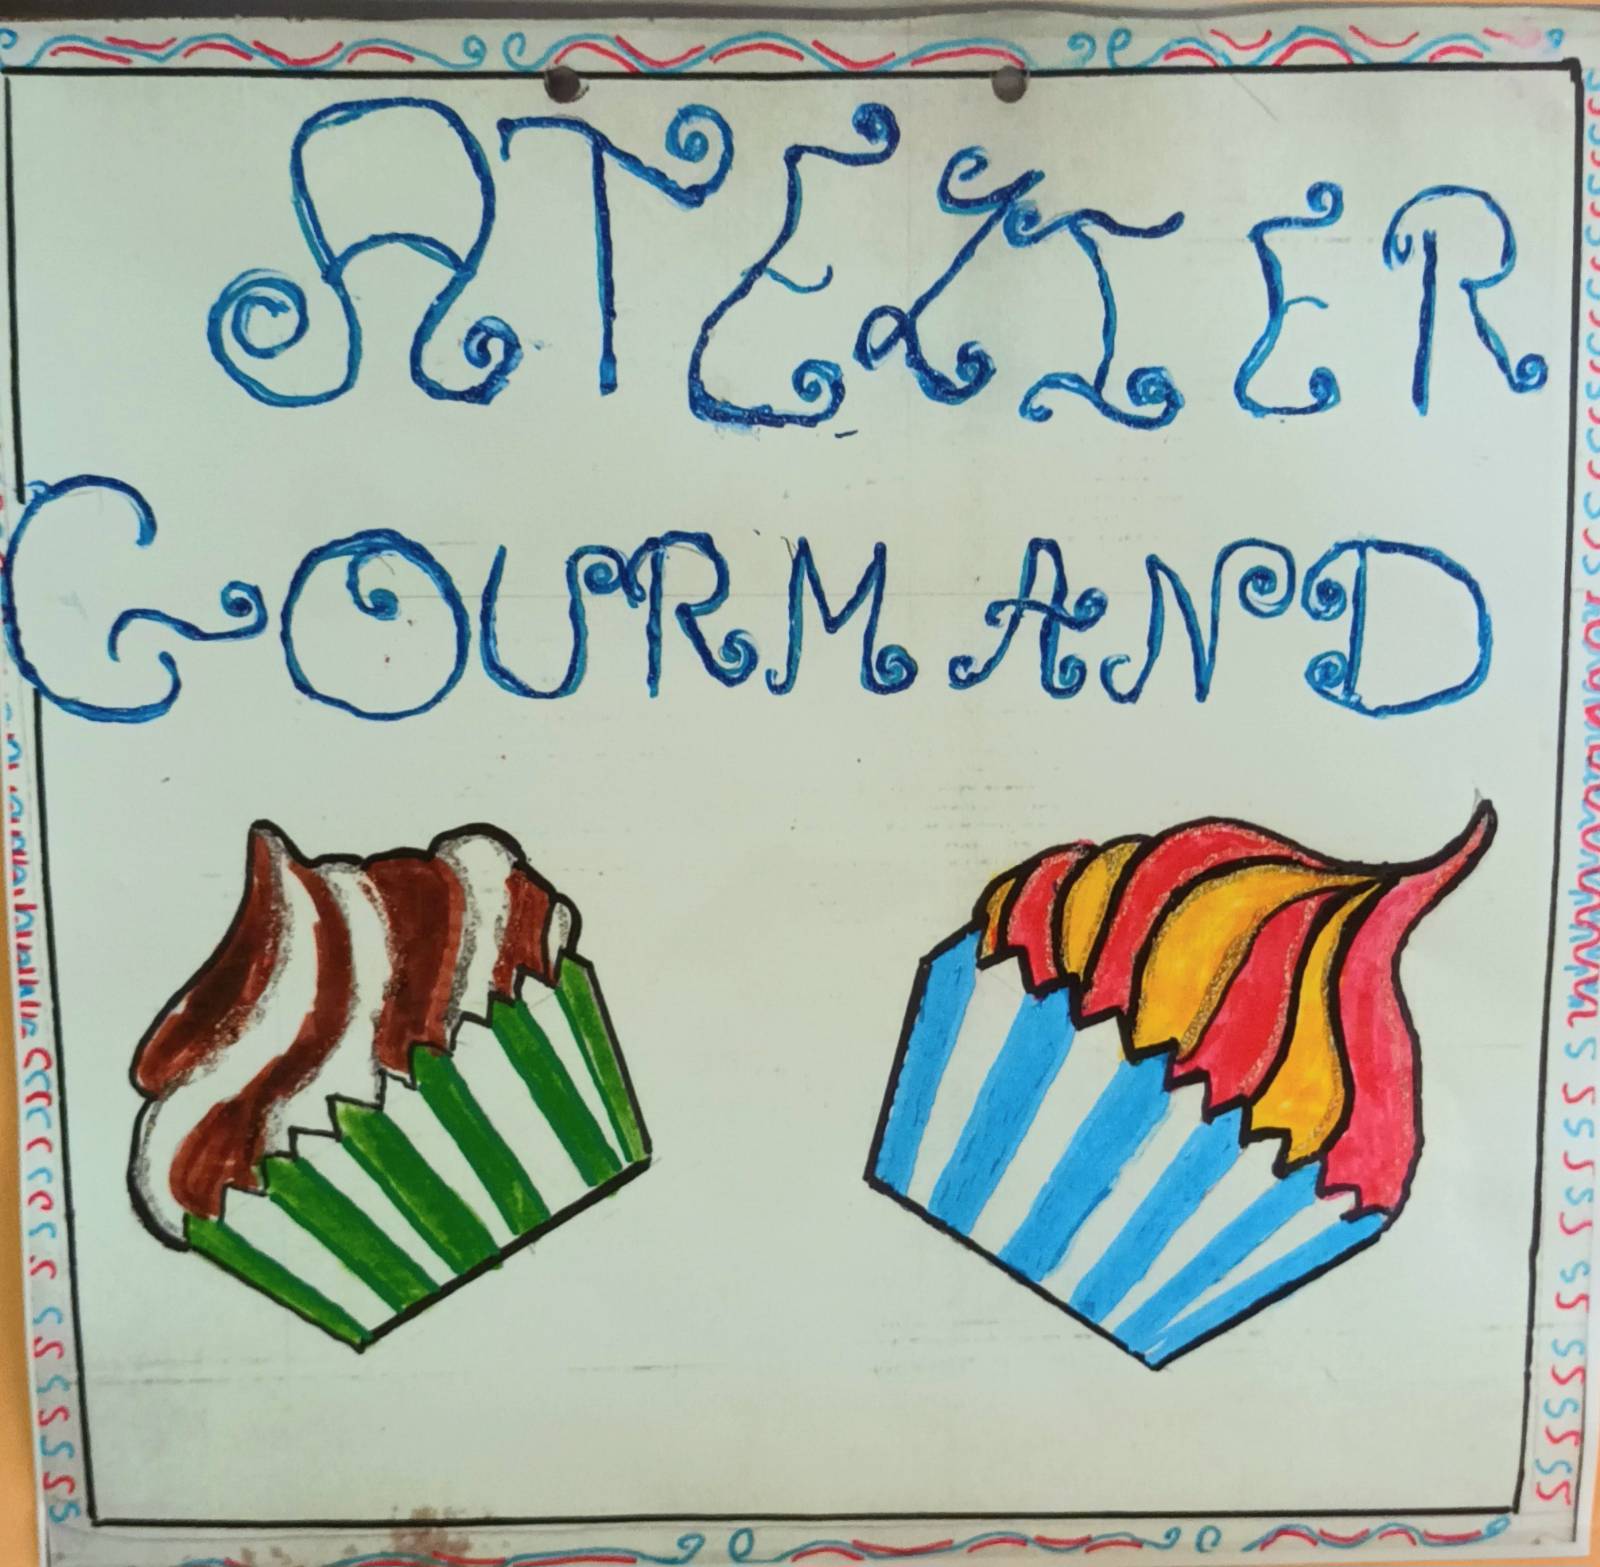 ATELIER
GOURMAND